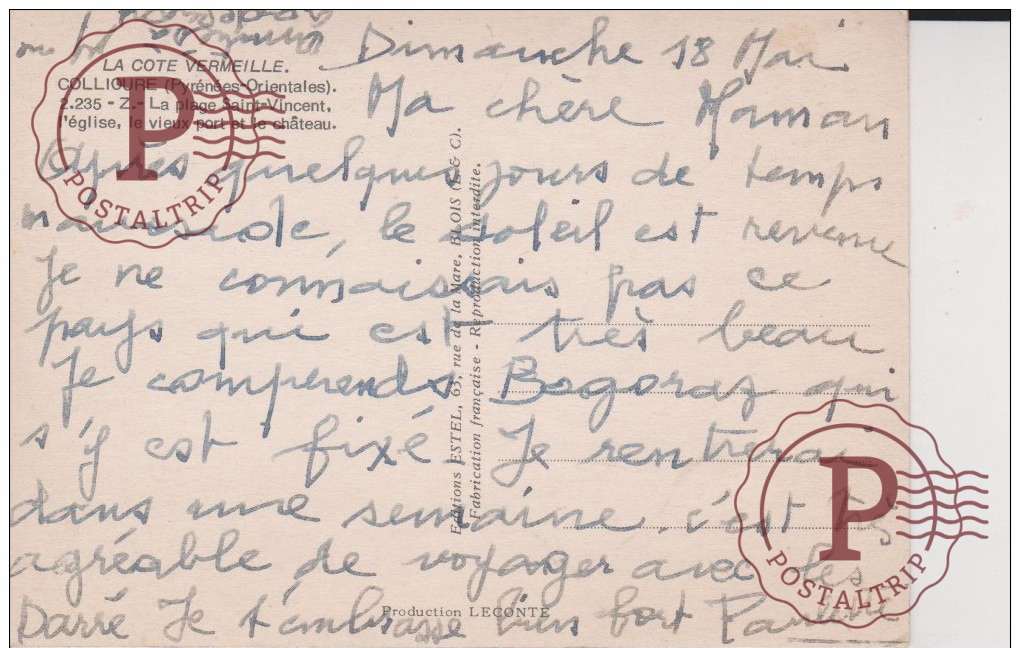 LA COTE VERMEILLE.
COLLIOURE (Pyrénées-Orientales).
2.235 - Z. - La plage Saint-Vincent,
l'église, le vieux port et le château.
Dimanche 18 Mai
Ma chère Maman
Après quelques jours de temps
maussade, le soleil est revenu
Je ne connaissais pas ce
pays qui est très beau
Je comprends Bogoraz qui
s'y est fixé. Je rentrerai
dans une semaine. c'est très
agréable de voyager avec les
Darré Je t'embrasse bien fort Pauline
Editions ESTEL, 63, rue de la Mare, BLOIS (L.& C).
Fabrication française - Reproduction interdite.
Production LECONTE
P
POSTALTRIP
P
POSTALTRIP